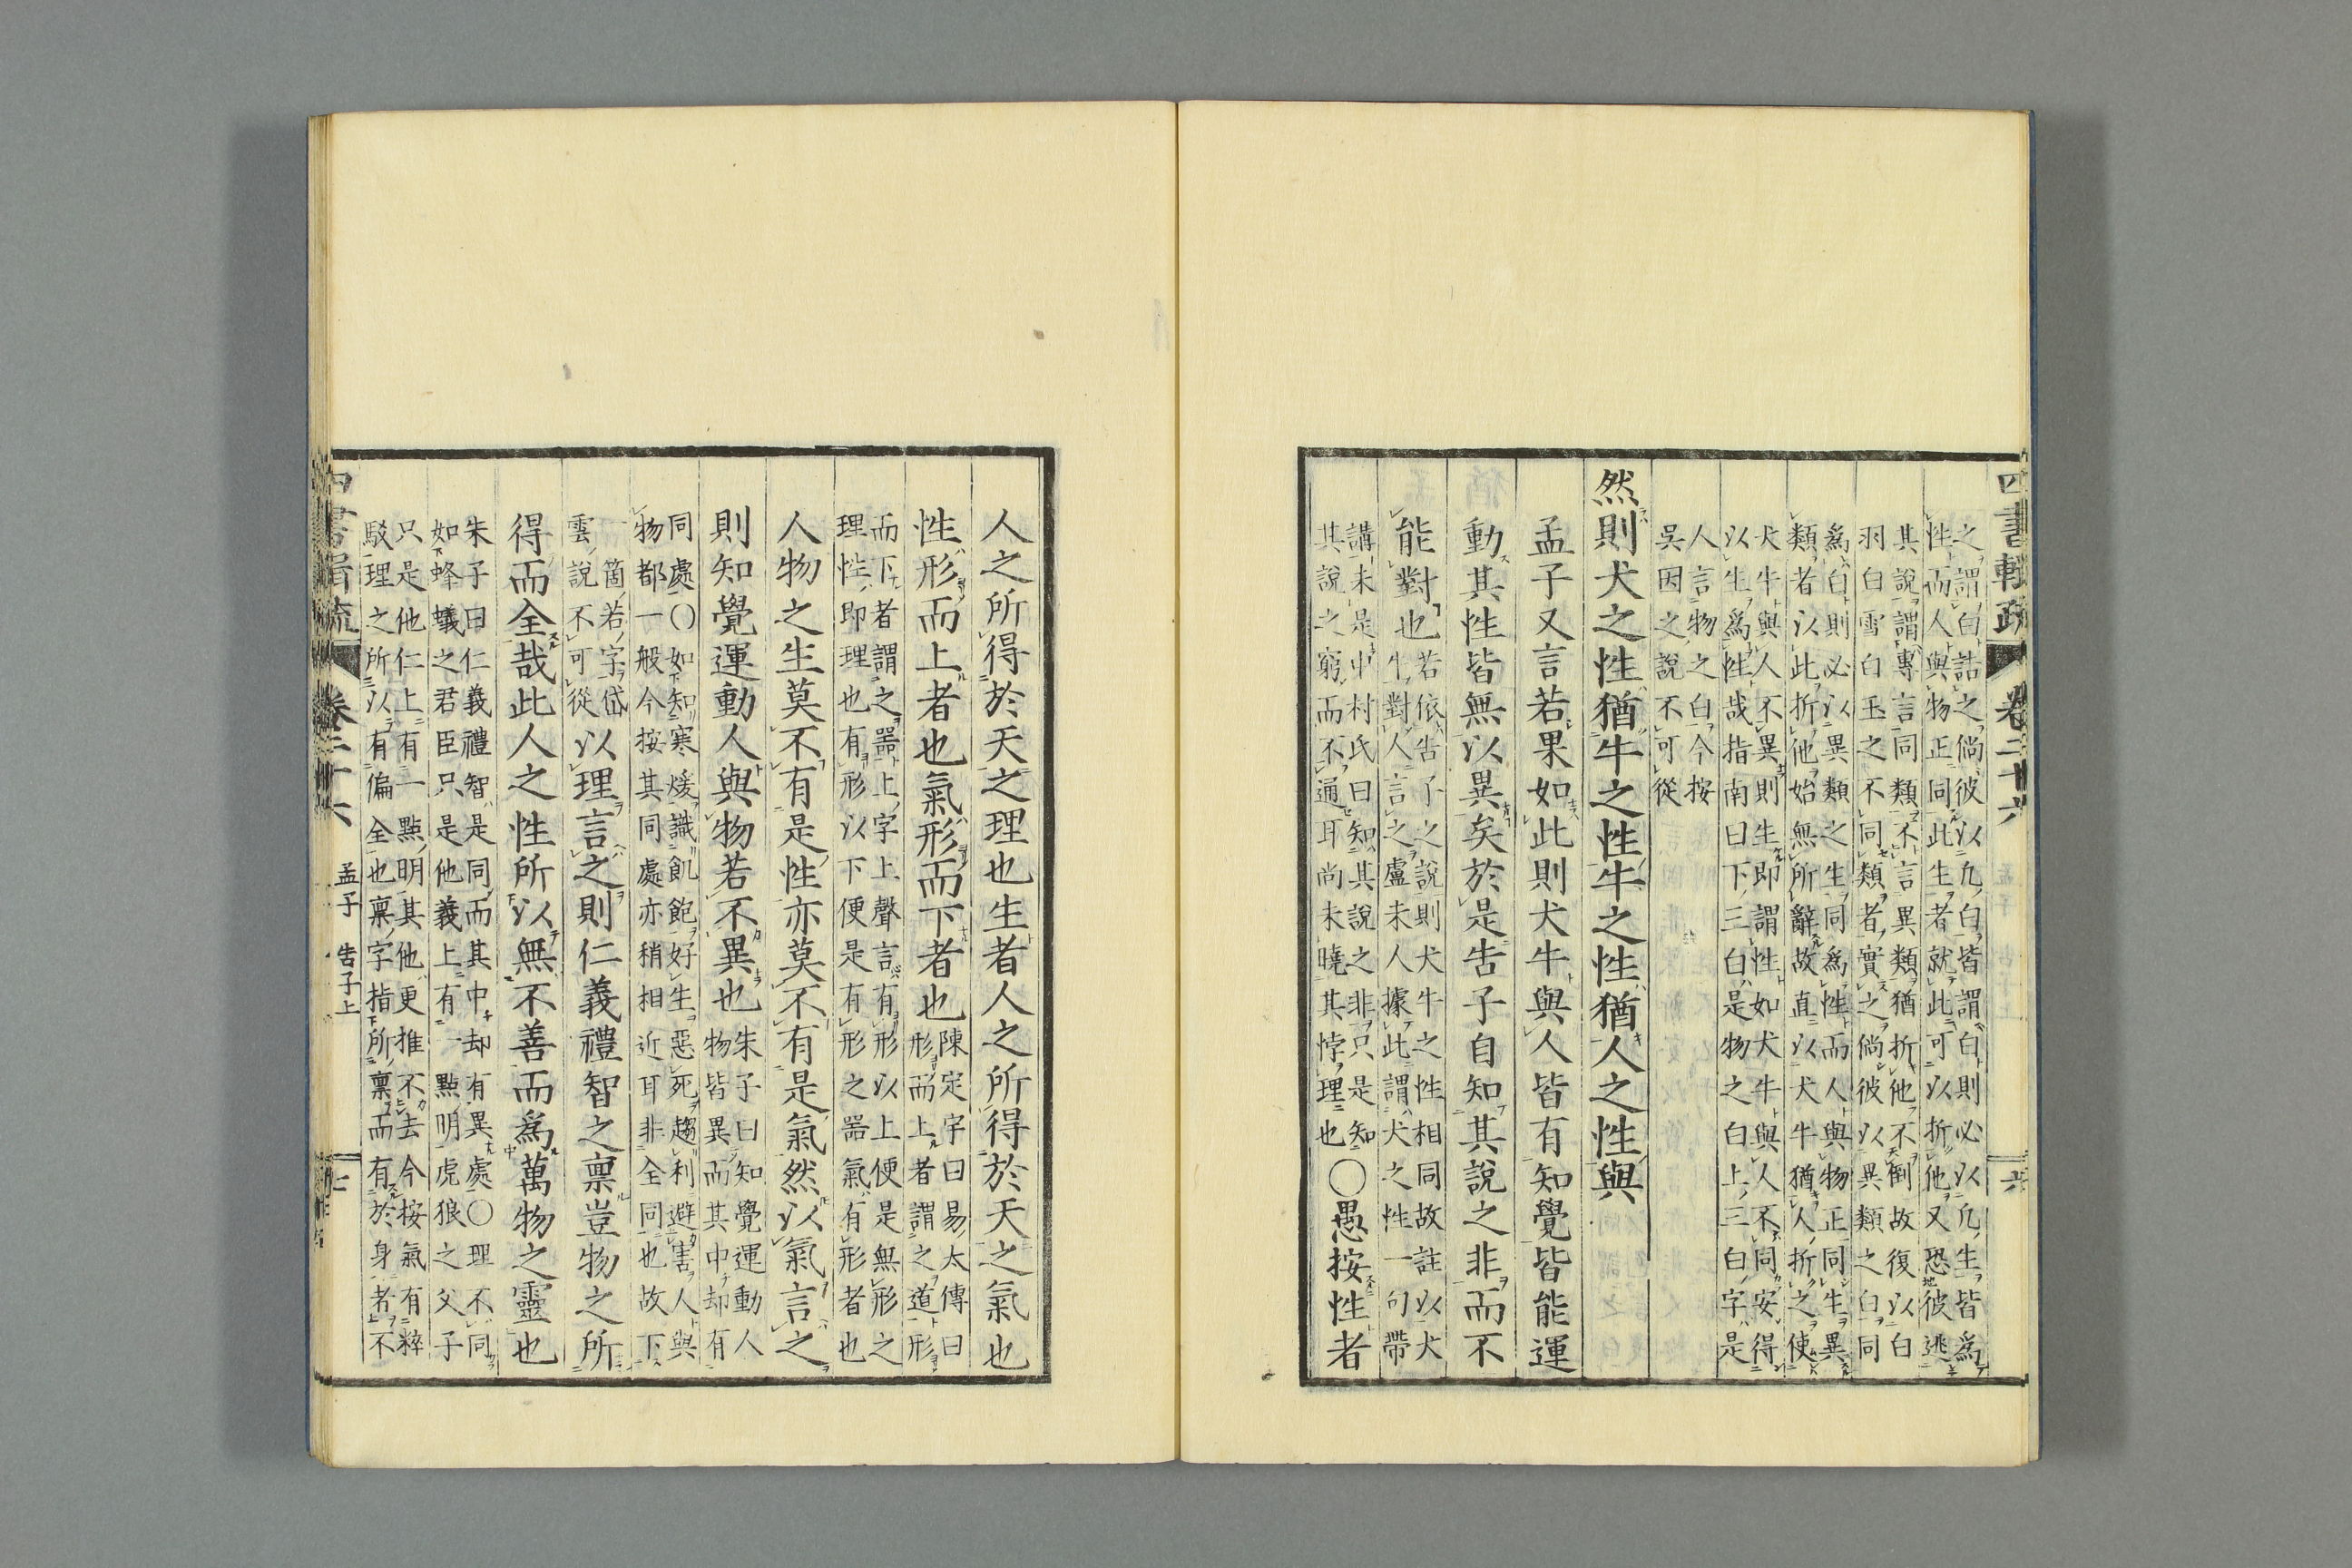 四書輯疏 卷二十六 六
之謂白詰之倘彼以凡白皆謂白則必以凡生皆爲
性而人與物正同此生者就此可以折他又恐彼逃
其說謂專言同類不言異類猶折他不倒故復以白
羽白雪白玉之不同類者實之倘彼以異類之白同
爲白則必以異類之生同爲性而人與物正同生異
類者以此折他始無所辭故直以犬牛猶人折之使
犬牛與人不異則生即謂性如犬牛與人不同安得
以生爲性哉指南曰下三白是物之白上三白字是
人言物之白今按
吳因之說不可從
然則犬之性猶牛之性牛之性猶人之性與
孟子又言若果如此則犬牛與人皆有知覺皆能運
動其性皆無以異矣於是告子自知其說之非而不
能對也
若依告子之說則犬牛之性相同故註以犬
牛對人言之盧未人據此謂犬之性一句帶
講未是中村氏曰知其說之非只是知
其說之窮而不通耳尚未曉其悖理也
○愚按性者
人之所得於天之理也生者人之所得於天之氣也
性形而上者也氣形而下者也
陳定宇曰易大傳曰
形而上者謂之道形
而下者謂之器上字上聲言有形以上便是無形之
理性即理也有形以下便是有形之器氣有形者也
人物之生莫不有是性亦莫不有是氣然以氣言之
則知覺運動人與物若不異也
朱子曰知覺運動人
物皆異而其中却有
同處○如知寒煖識飢飽好生惡死趨利避害人與
物都一般今按其同處亦稍相近耳非全同也故下
一箇若字岱
雲說不可從
以理言之則仁義禮智之禀豈物之所
得而全哉此人之性所以無不善而爲萬物之靈也
朱子曰仁義禮智是同而其中却有異處○理不同
如蜂蟻之君臣只是他義上有一點明虎狼之父子
只是他仁上有一點明其他更推不去今按氣有粹
駁理之所以有偏全也禀字指所禀而有於身者不
四書輯疏 卷二十六 孟子 告子上 七